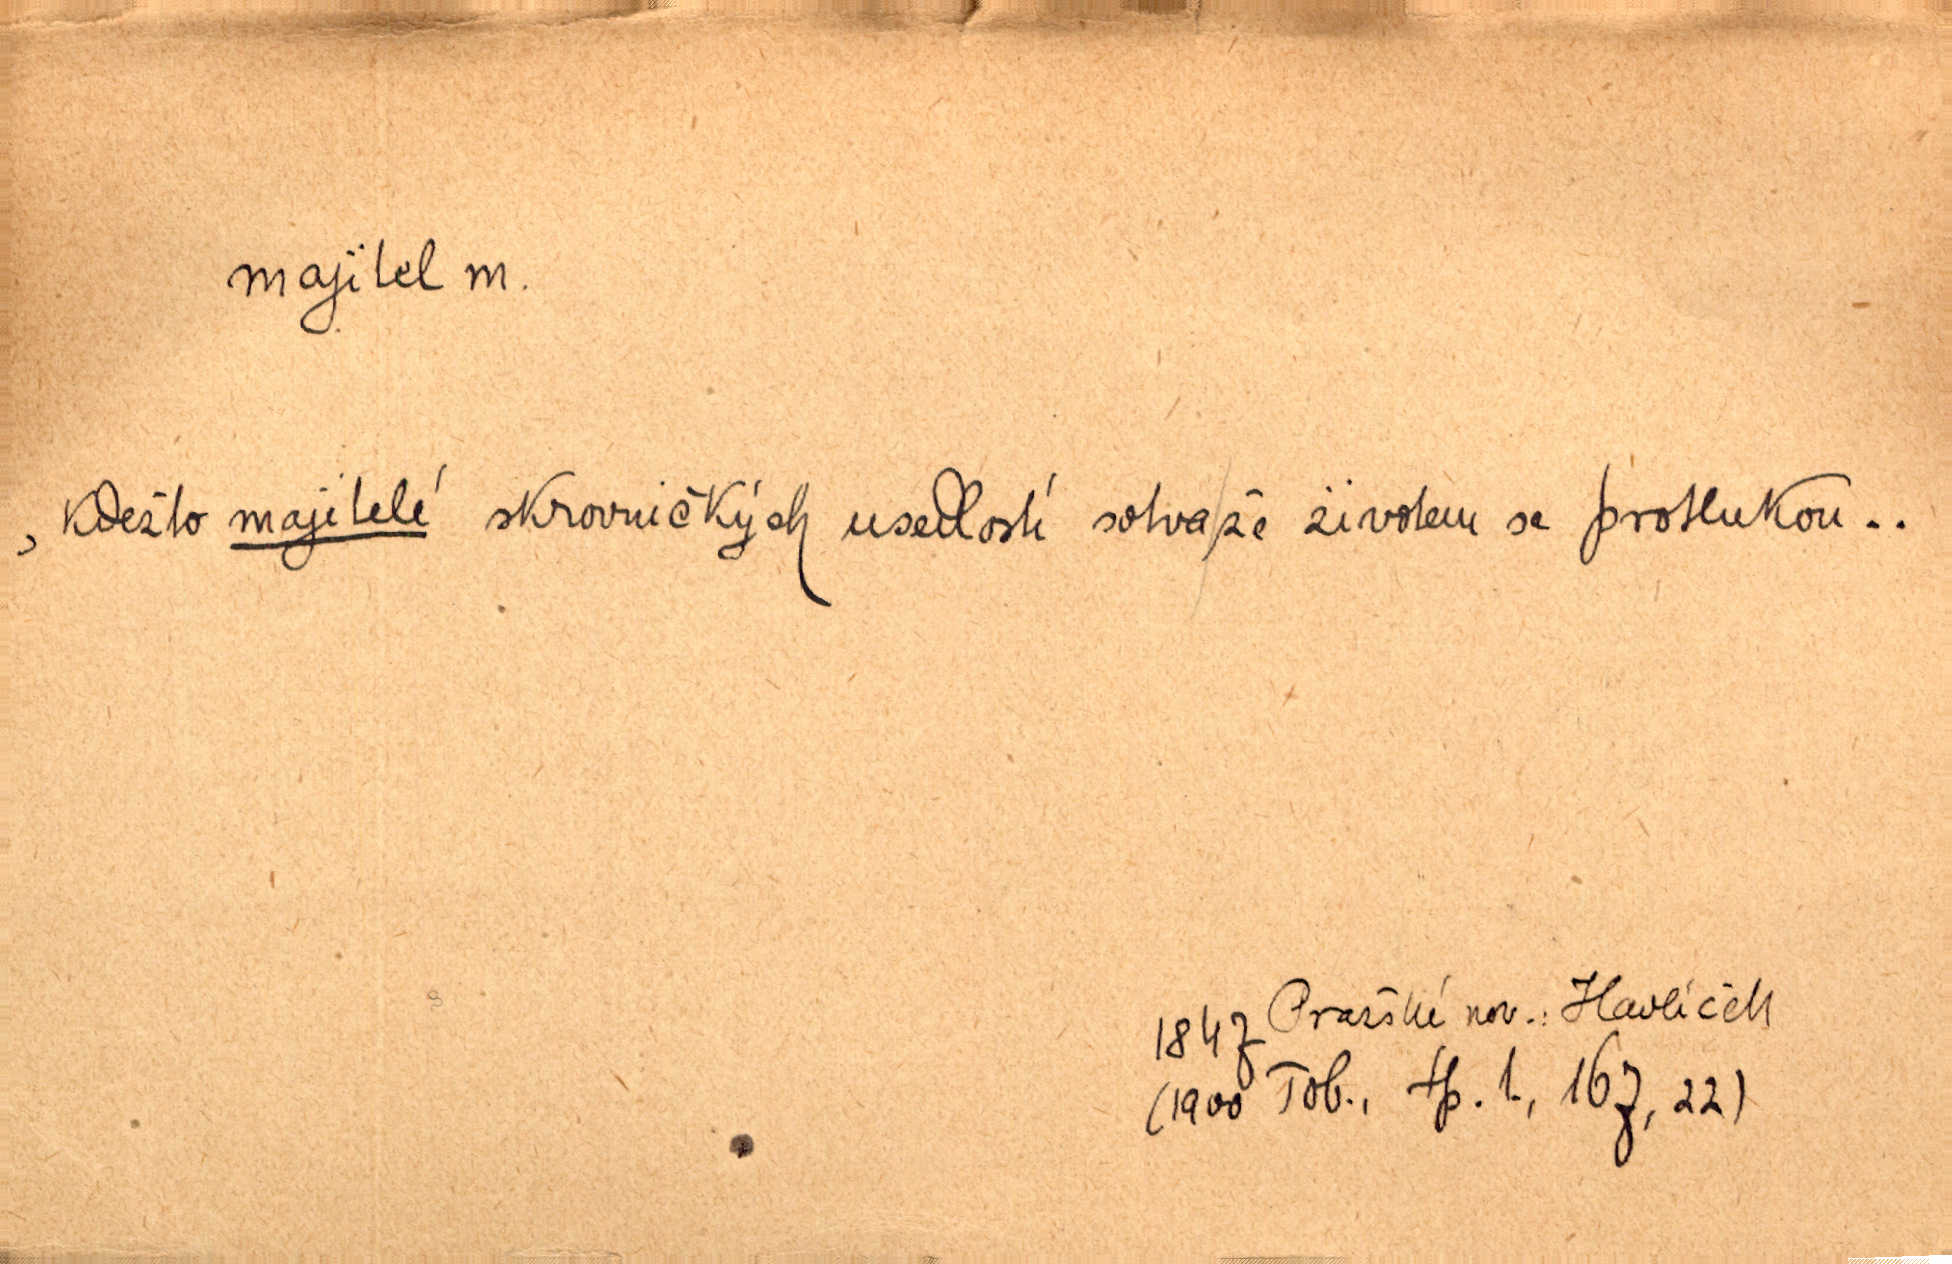 majitel m.
, kdežto majitelé skrovničkých usedlostí sotva/že životem se protlukou..
1847 Pražské nov.: Havlíček
(1900 Tob., sp. 1., 167, 22)